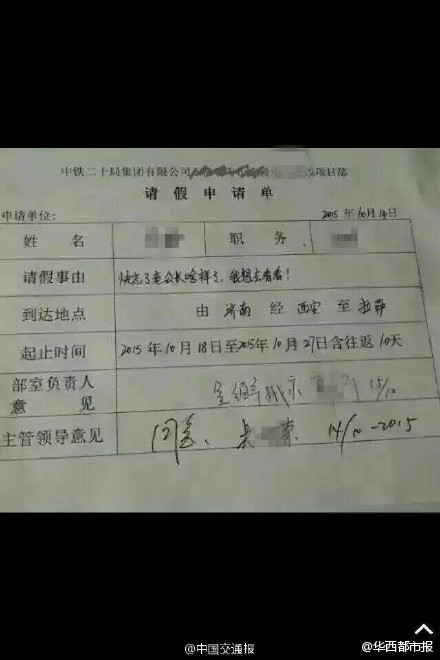 中铁二十局集团有限公司 改项目部
请假申请单
申请单位: 2015年10月14日
姓名 职务
请假事由 快忘了老公长啥样了，我想去看看！
到达地点 由 济南 经 西安 至 拉萨
起止时间 2015年10月18日至2015年10月27日含往返10天
部室负责人
意见 15/10
主管领导意见 同意、吴 荣 14/10-2015
@中国交通报
@华西都市报